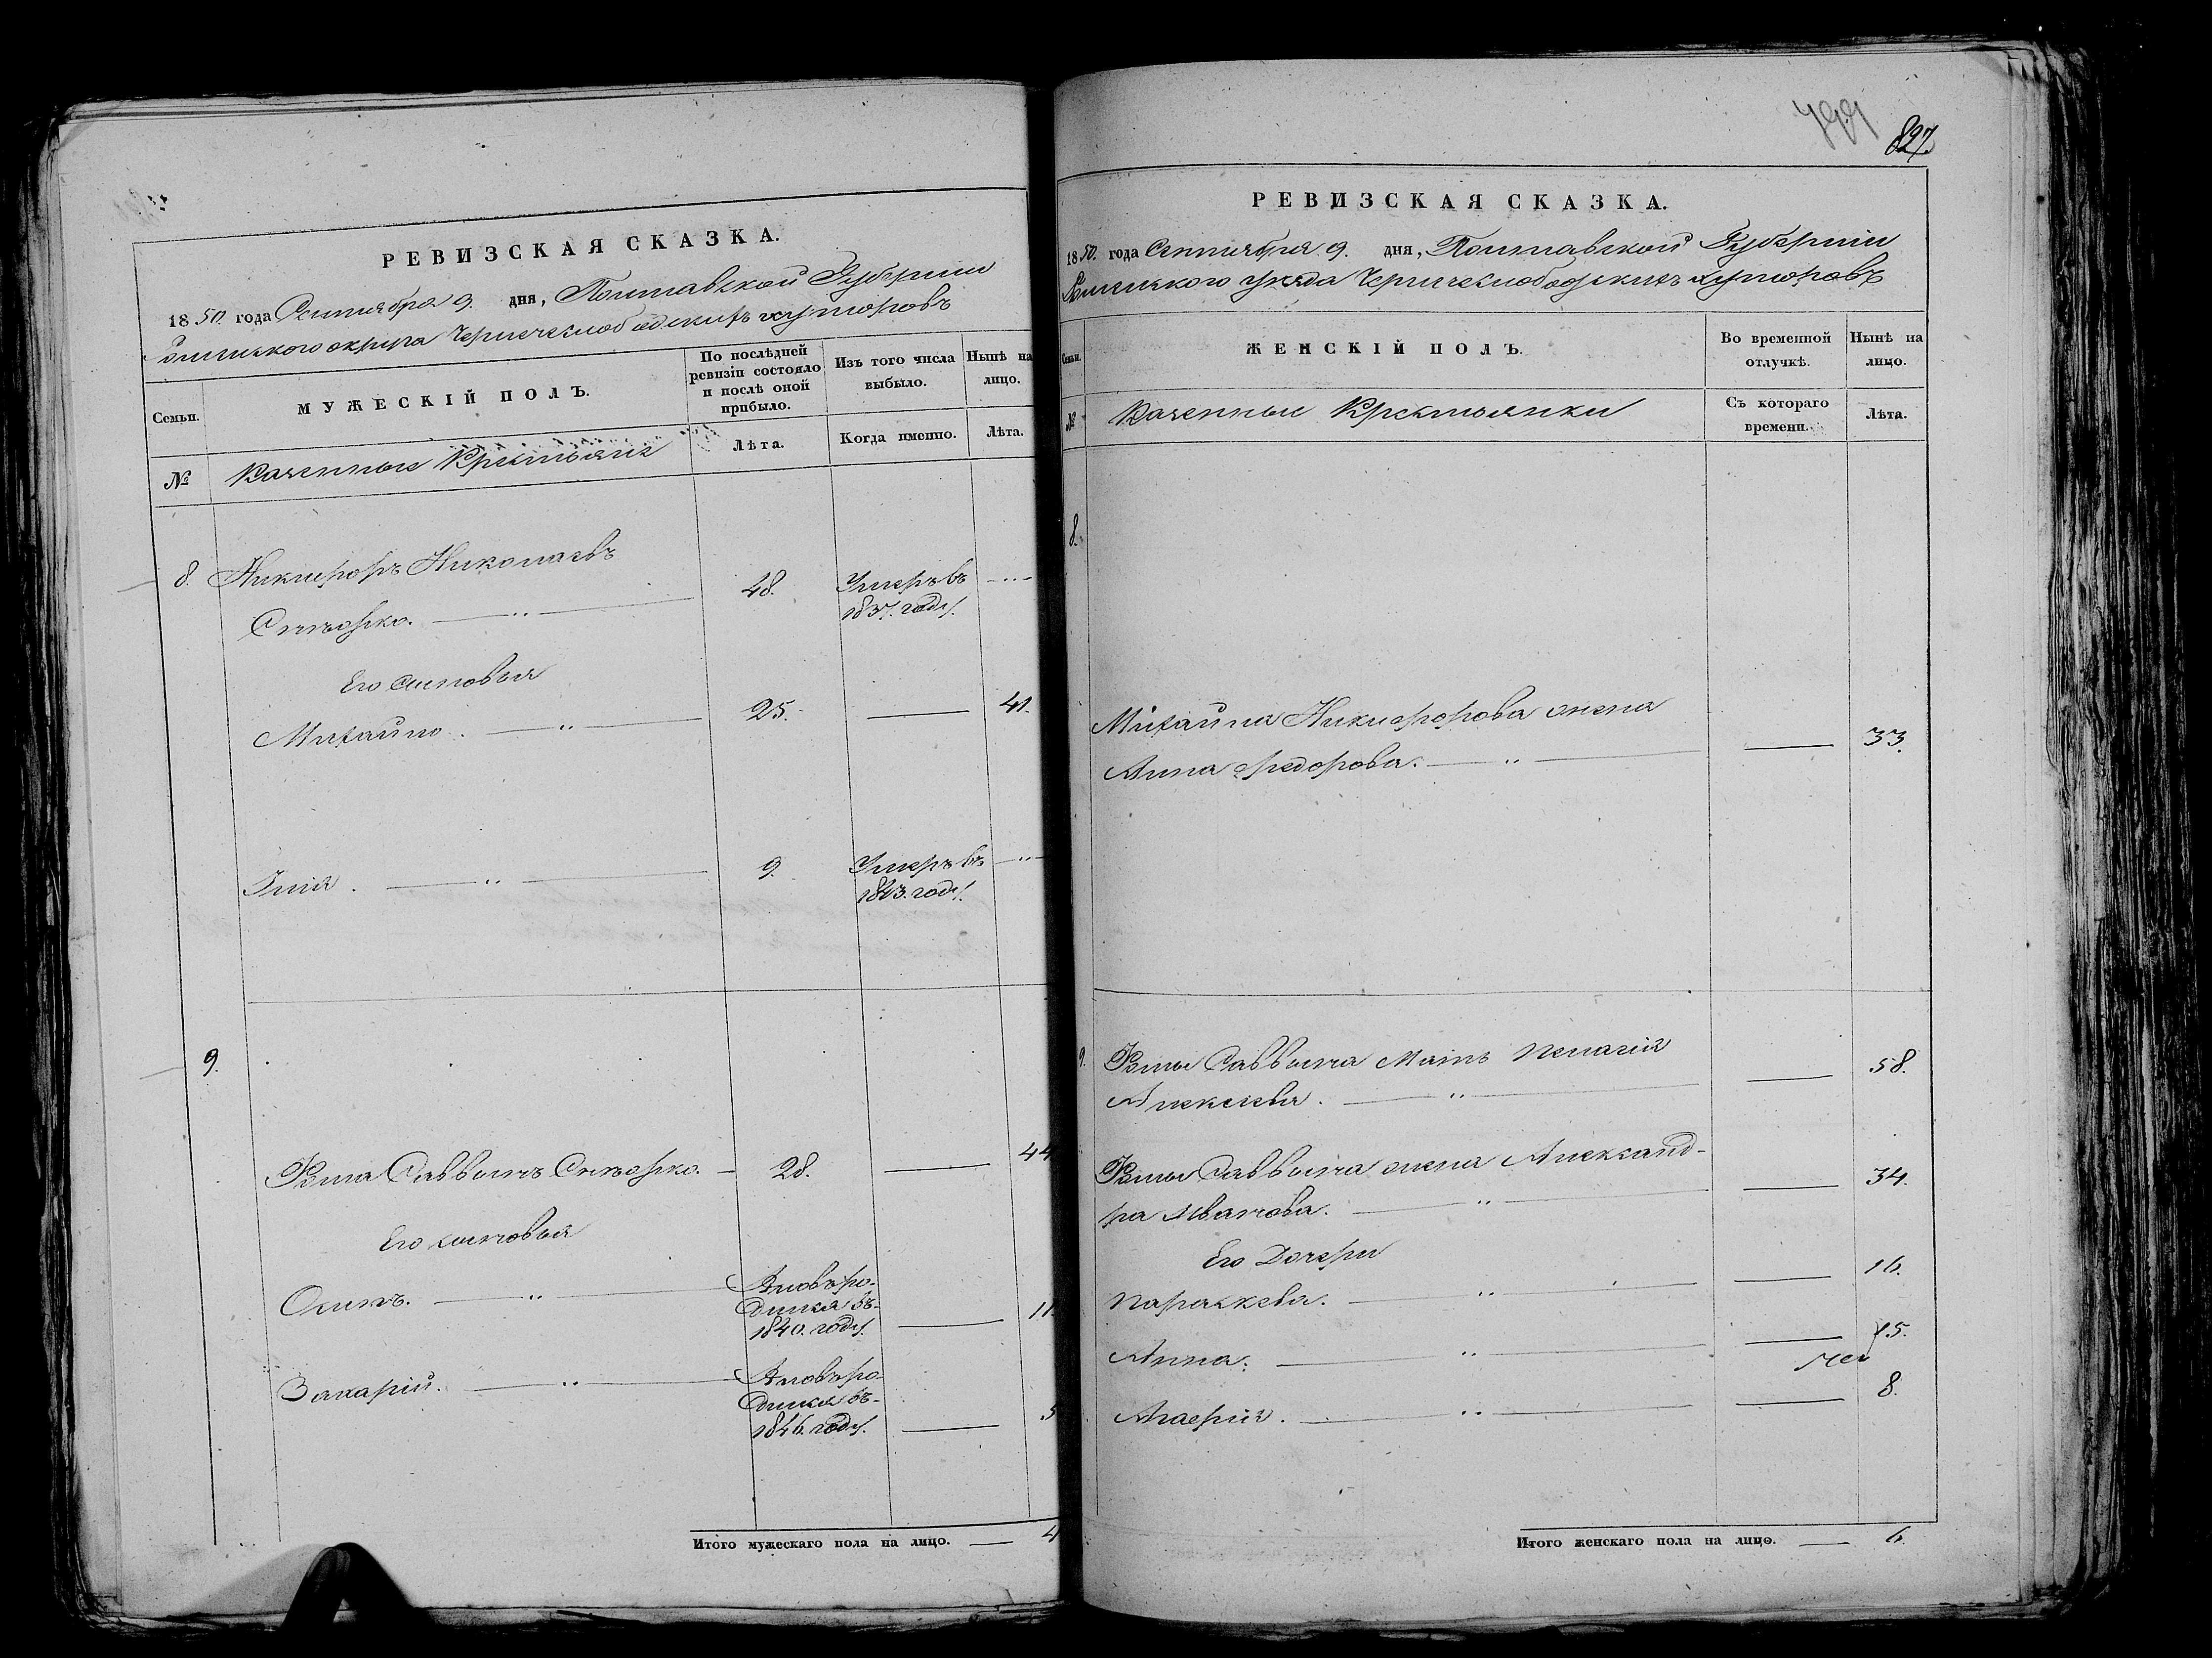 РЕВИЗСКАЯ СКАЗКА.
1850. года Сентября 9. дня, Полтавской Губернии
округа Чернечеслободскихъ хуторовъ
Семьи.
МУЖЕСКІЙ ПОЛЪ.
По послѣдней ревизіи состояло и послѣ оной прибыло.
Изъ того числа выбыло.
Нынѣ на лицо.
№
Казенные Крестьяне
Лѣта.
Когда именно.
Лѣта.
8. Никифоръ Николаевъ
Снѣжко. 48. Умеръ въ 1837. году.
Его сыновья
Михайло. 25. 41.
Илія. 9. Умеръ въ 1843. году.
9.
Кузма Саввинъ Снѣжко. 28. 44
Его сыновья
Осипъ. Вновь ро-
дился въ
1840. году. 11.
Захарій. Вновь ро-
дился въ
1846. году. 5
Итого мужескаго пола на лицо. 4
799
827.
РЕВИЗСКАЯ СКАЗКА.
1850. года Сентября 9. дня, Полтавской Губерніи
уѣзда Чернечеслободскихъ хуторовъ
Семьи.
ЖЕНСКІЙ ПОЛЪ.
Во временной отлучкѣ.
Нынѣ на лицо.
№
Казенные Крестьянки
Съ котораго времени.
Лѣта.
8.
Михайла Никифорова жена
Анна Федорова. 33.
9. Кузмы Саввина Мать Пелагія
Алексеева. 58.
Кузмы Саввина жена Александ-
ра Иванова. 34.
Его Дочери
Параскева. 16.
Анна. 15.
8.
Итого женскаго пола на лицо. 6.